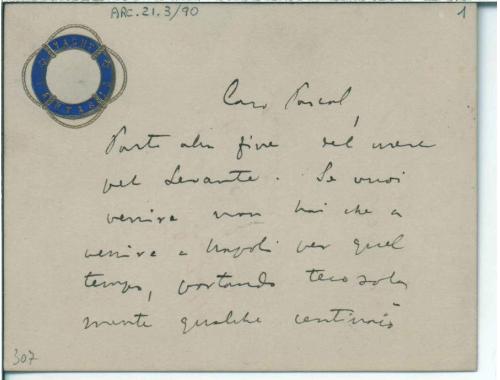 ARC.21.3/90
1
YACHT
FANTASIA
Caro Pascal,
Parto alla fine del mese
pel Levante. Se vuoi
venire non hai che a
venire a Napoli per quel
tempo, portando teco sola
mente qualche centinaio
307